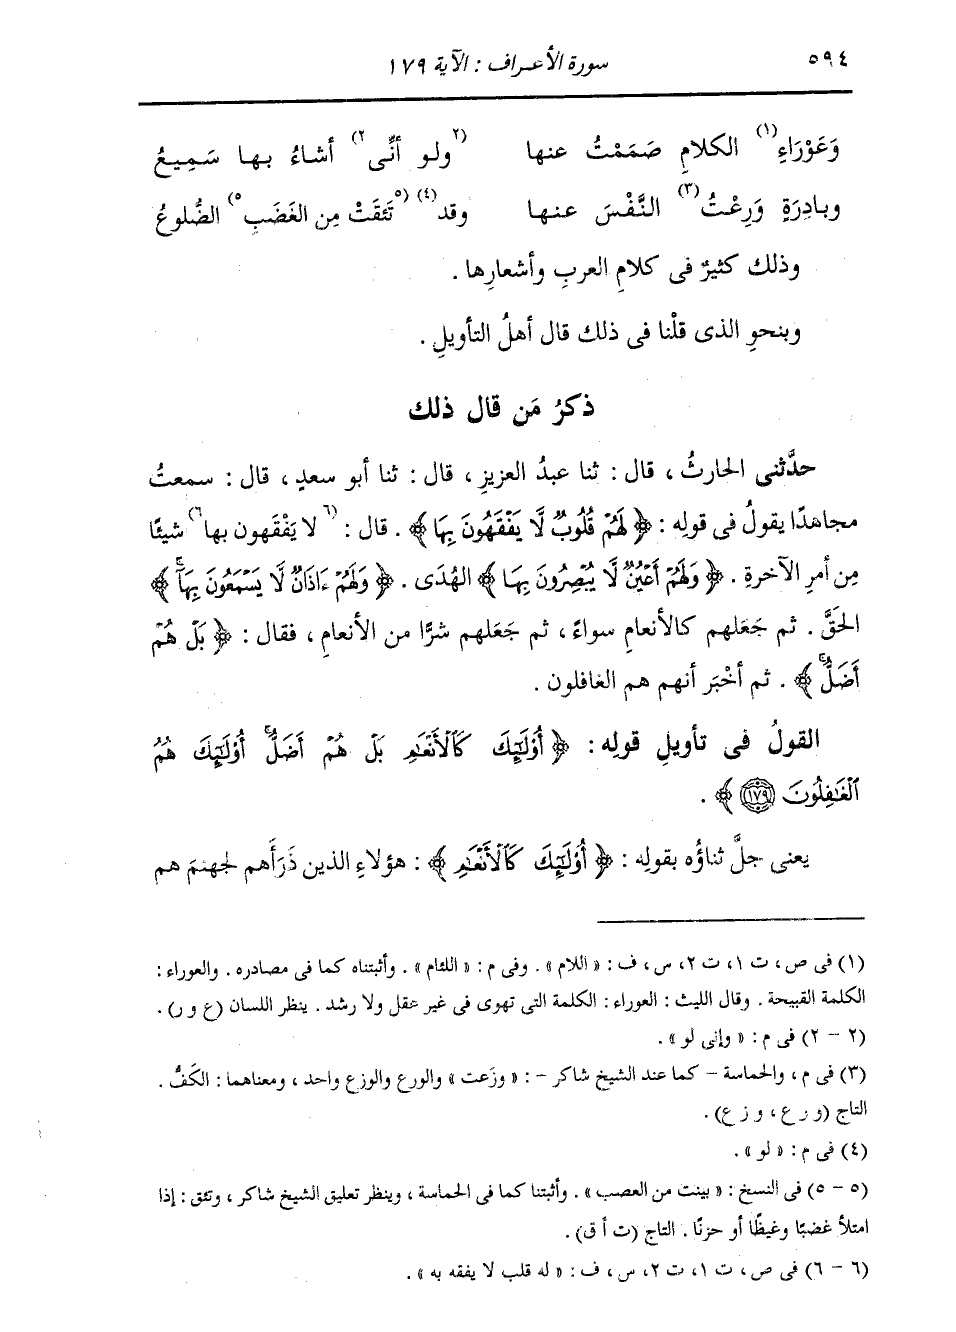 ٥٩٤ سورة الأعراف : الآية ١٧٩
وَعَوْرَاءِ(١) الكلامِ صَمَمْتُ عنها (٢ولو أنِّى٢) أشاءُ بها سَمِيعُ
وبادِرَةٍ وَرِعْتُ(٣) النَّفْسَ عنها وقد(٤) (٥تَئِقَتْ مِن الغَضَبِ٥) الضُّلوعُ
وذلك كثيرٌ فى كلامِ العربِ وأشعارِها .
وبنحوِ الذى قلْنا فى ذلك قال أهلُ التأويلِ .
ذكرُ مَن قال ذلك
حدَّثنى الحارثُ ، قال : ثنا عبدُ العزيزِ ، قال : ثنا أبو سعدٍ ، قال : سمعتُ
مجاهدًا يقولُ فى قولِه : ﴿ لَهُمْ قُلُوبٌ لَّا يَفْقَهُونَ بِهَا ﴾ . قال : (٦لا يَفْقَهون بها٦) شيئًا
مِن أمرِ الآخرةِ . ﴿ وَلَهُمْ أَعْيُنٌ لَّا يُبْصِرُونَ بِهَا ﴾ الهُدَى . ﴿ وَلَهُمْ ءَاذَانٌ لَّا يَسْمَعُونَ بِهَآ ﴾
الحَقَّ . ثم جَعَلهم كالأنعامِ سواءً ، ثم جَعَلهم شرًّا من الأنعامِ ، فقال : ﴿ بَلْ هُمْ
أَضَلُّ ﴾ . ثم أخْبَر أنهم هم الغافلون .
القولُ فى تأويلِ قولِه : ﴿ أُوْلَٰٓئِكَ كَٱلْأَنْعَٰمِ بَلْ هُمْ أَضَلُّ أُوْلَٰٓئِكَ هُمُ
ٱلْغَٰفِلُونَ ١٧٩ ﴾ .
يعنى جلَّ ثناؤُه بقولِه : ﴿ أُوْلَٰٓئِكَ كَٱلْأَنْعَٰمِ ﴾ : هؤلاءِ الذين ذَرَأَهم لجهنمَ هم
(١) فى ص ، ت ١ ، ت ٢ ، س ، ف : « اللام » . وفى م : « اللئام » . وأثبتناه كما فى مصادره . والعوراء :
الكلمة القبيحة . وقال الليث : العوراء : الكلمة التى تهوى فى غير عقل ولا رشد . ينظر اللسان (ع و ر) .
(٢ - ٢) فى م : « وإنى لو » .
(٣) فى م ، والحماسة - كما عند الشيخ شاكر - : « وزَعت » والورع والوزع واحد ، ومعناهما : الكَفُّ .
التاج (و ر ع ، و ز ع) .
(٤) فى م : « لو » .
(٥ - ٥) فى النسخ : « بينت من العصب » . وأثبتنا كما فى الحماسة ، وينظر تعليق الشيخ شاكر ، وتئق : إذا
امتلأ غضبًا وغيظًا أو حزنًا . التاج (ت أ ق) .
(٦ - ٦) فى ص ، ت ١ ، ت ٢ ، س ، ف : « له قلب لا يفقه به » .